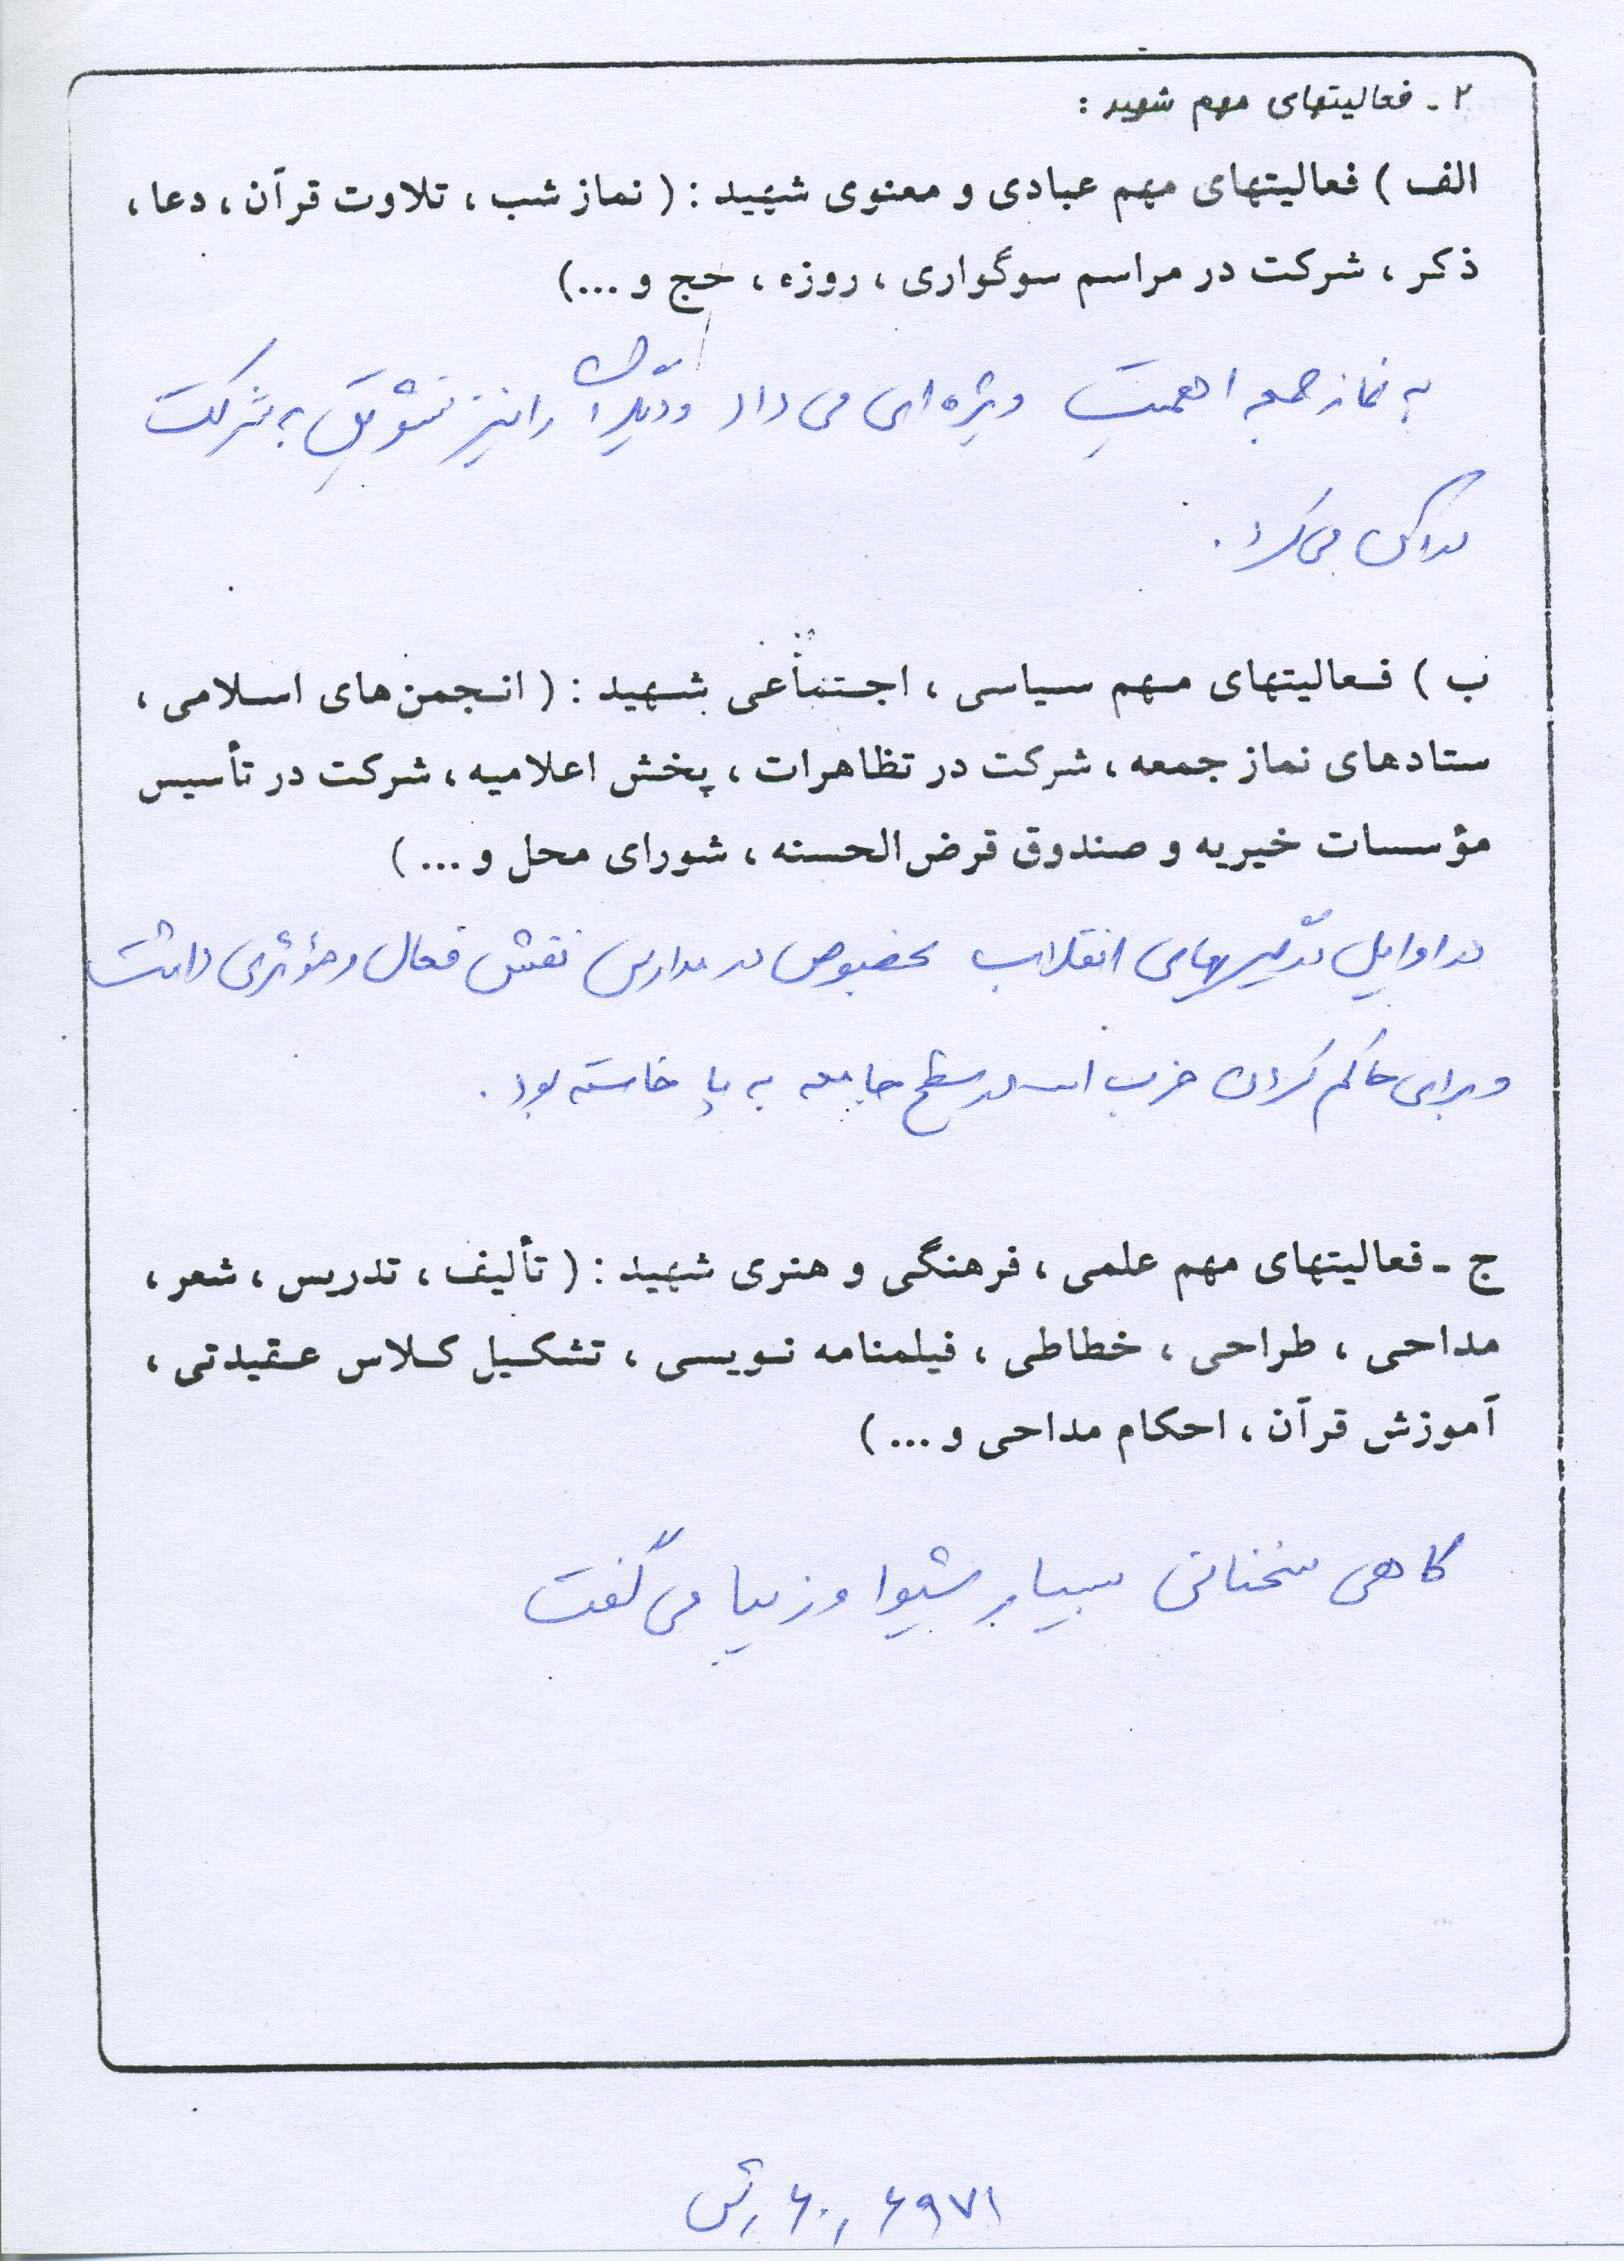 ۲ ـ فعالیتهای مهم شهید :
الف ) فعالیتهای مهم عبادی و معنوی شهید : ( نماز شب ، تلاوت قرآن ، دعا ،
ذکر ، شرکت در مراسم سوگواری ، روزه ، حج و ...)
به نماز جمعه اهمیت ویژه ای می داد و دیگران را نیز تشویق به شرکت
در آن می کرد .
ب ) فعالیتهای مهم سیاسی ، اجتماعی شهید : ( انجمن های اسلامی ،
ستادهای نماز جمعه ، شرکت در تظاهرات ، پخش اعلامیه ، شرکت در تأسیس
مؤسسات خیریه و صندوق قرض الحسنه ، شورای محل و ... )
در اوایل درگیریهای انقلاب بخصوص در مدارس نقش فعال و مؤثری داشت
و برای حاکم کردن حزب ا... در سطح جامعه به پا خاسته بود .
ج ـ فعالیتهای مهم علمی ، فرهنگی و هنری شهید : ( تألیف ، تدریس ، شعر ،
مداحی ، طراحی ، خطاطی ، فیلمنامه نویسی ، تشکیل کلاس عقیدتی ،
آموزش قرآن ، احکام مداحی و ... )
گاهی سخنانی بسیار شیوا و زیبا می گفت
۶۹۷۱